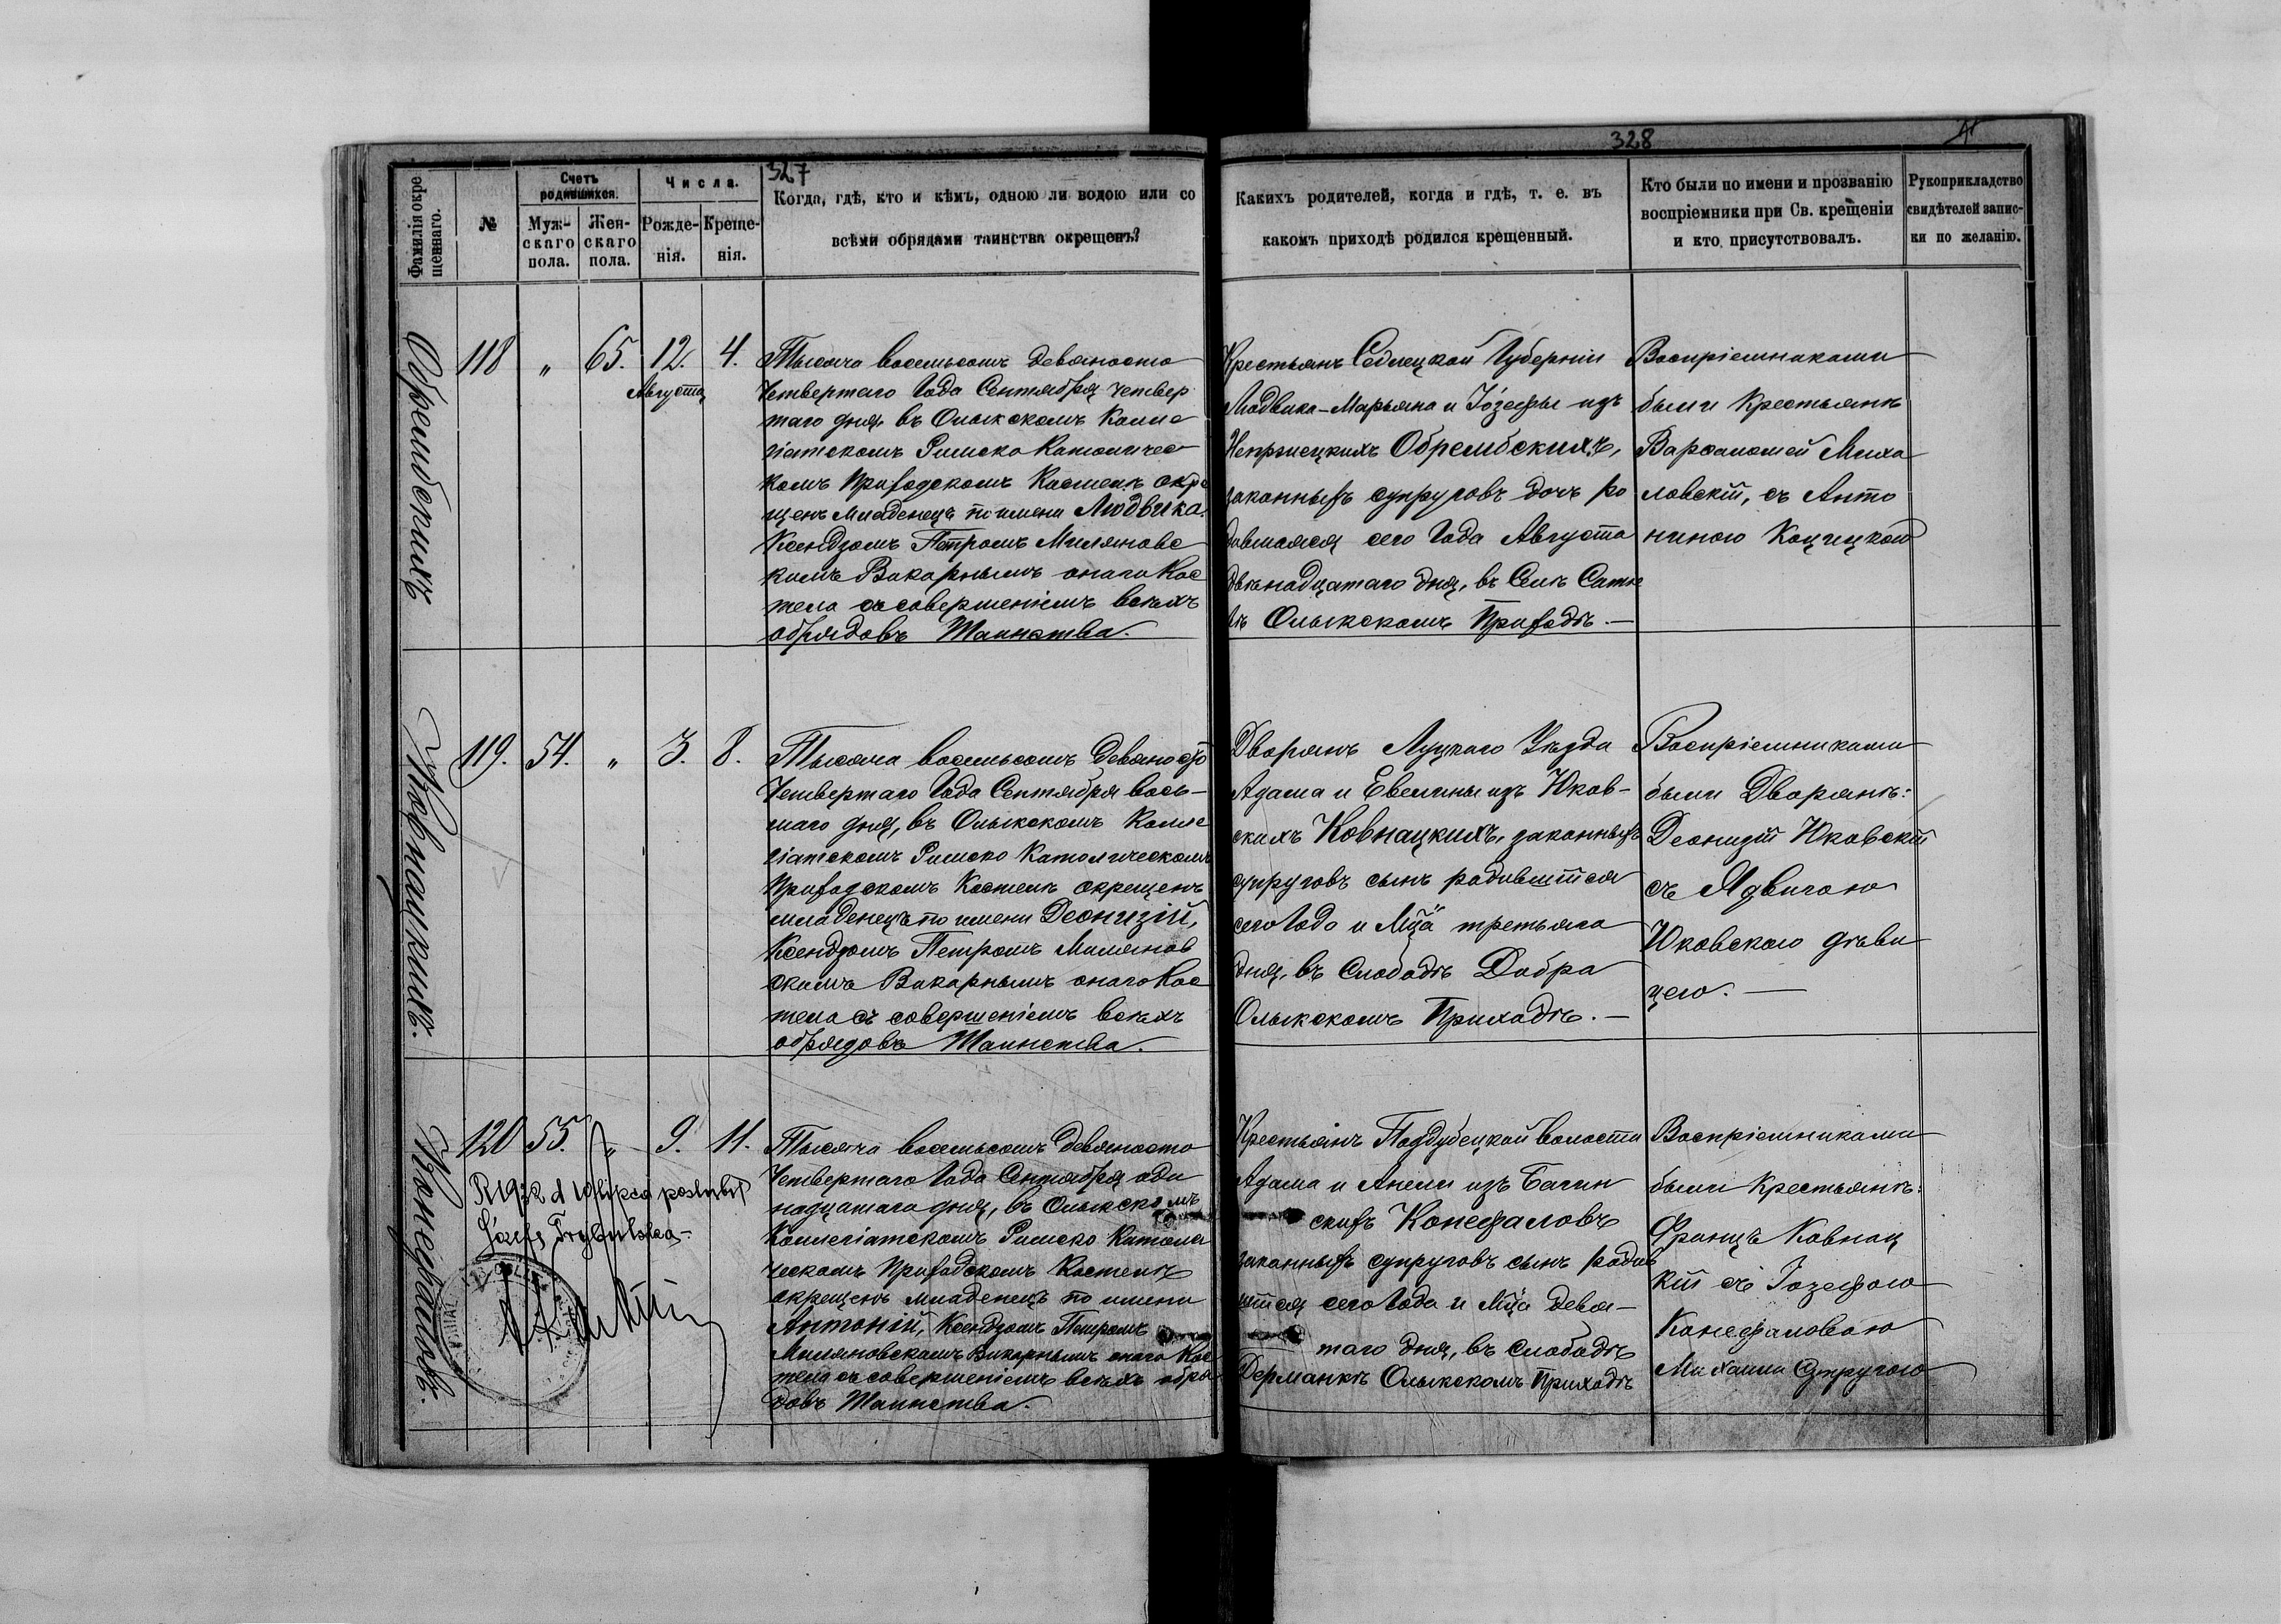 327
Фамилія окре
щеннаго.
№
Счетъ
родившихся.
Муж-
скаго
пола.
Жен-
скаго
пола.
Числа.
Рожде-
нія.
Креще-
нія.
Когда, гдѣ, кто и кѣмъ, одною ли водою или со
всѣми обрядами таинства окрещенъ?
Обрембскихъ
118
"
65.
12.
Августа
4.
Тысяча восемьсотъ девяносто
Четвертаго Года Сентября четвер
таго дня, въ Олыкскомъ Колле
гіатскомъ Римско Католичес
комъ Приходскомъ Костелѣ окре
щенъ Младенецъ по имени Людвика
Ксендзомъ Петромъ Миляновс
кимъ Викарнымъ онаго Кос
тела съ совершеніемъ всѣхъ
обрядовъ Таинства.
Ковнацкихъ.
119.
54.
"
3.
8.
Тысяча восемьсотъ Девяносто
Четвертаго Года Сентября вось-
маго дня, въ Олыкскомъ Колле
гіатскомъ Римско Католическомъ
Приходскомъ Костелѣ окрещенъ
младенецъ по имени Деонизій,
Ксендзомъ Петромъ Милянов
скимъ Викарнымъ онаго Кос
тела съ совершеніемъ всѣхъ
обрядовъ Таинства.
Конефаловъ.
120
55.
"
9.
11.
R 1922 d 10 lipca poślubił
Józefę Trybulską-
Тысяча восемьсотъ девяносто
Четвертаго Года Сентября оди
надцатаго дня, въ Олыкскомъ
Коллегіатскомъ Римско Католи
ческомъ Приходскомъ Костелѣ
окрещенъ младенецъ по имени
Антоній, Ксендзомъ Петромъ
Миляновскимъ Викарнымъ онаго Кос
тела съ совершеніемъ всѣхъ обря
довъ Таинства.
328
Какихъ родителей, когда и гдѣ, т. е. въ
какомъ приходѣ родился крещенный.
Кто были по имени и прозванію
воспріемники при Св. крещеніи
и кто присутствовалъ.
Рукоприкладство
свидѣтелей запис-
ки по желанію.
Крестьянъ Седлецкой Губерніи
Людвика-Марьяна и Іозефы изъ
Непржецкихъ Обрембскихъ,
законныхъ супруговъ дочь ро
дившаяся сего Года Августа
двѣнадцатаго дня, въ Селѣ
въ Олыкскомъ Приходѣ.—
Воспріемниками
были Крестьянѣ
Варфаломей Миха
ловскій, съ Анто
ниною Коцицкою
Дворянъ Луцкаго Уѣзда
Адама и Евелины изъ Юков-
скихъ Ковнацкихъ, законныхъ
супруговъ сынъ родившійся
сего Года и Мца третьяго
дня, въ Слободѣ Добра
Олыкскомъ Приходѣ.—
Воспріемниками
были Дворянѣ:
Деонизій Юковскій
съ Ядвигою
Юковскою дѣви
цею.—
Крестьянъ Поддубецкой волости
Адама и Анели изъ Багин
скихъ Конефаловъ
законныхъ супруговъ сынъ родив
шійся сего Года и Мца девя-
таго дня, въ Слободѣ
Дерманкѣ Олыкскомъ Приходѣ
Воспріемниками
были Крестьянѣ:
Францъ Ковнац
кій съ Іозефою
Конефаловою
Михаила Супругою